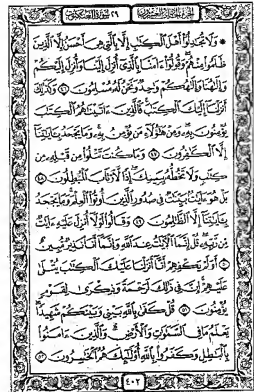 سُورَةُ العَنكبُوتِ ٢٩
۞ وَلَا تُجَٰدِلُوٓا۟ أَهْلَ ٱلْكِتَٰبِ إِلَّا بِٱلَّتِى هِىَ أَحْسَنُ إِلَّا ٱلَّذِينَ
ظَلَمُوا۟ مِنْهُمْ وَقُولُوٓا۟ ءَامَنَّا بِٱلَّذِىٓ أُنزِلَ إِلَيْنَا وَأُنزِلَ إِلَيْكُمْ
وَإِلَٰهُنَا وَإِلَٰهُكُمْ وَٰحِدٌ وَنَحْنُ لَهُۥ مُسْلِمُونَ ٤٦ وَكَذَٰلِكَ
أَنزَلْنَآ إِلَيْكَ ٱلْكِتَٰبَ فَٱلَّذِينَ ءَاتَيْنَٰهُمُ ٱلْكِتَٰبَ
يُؤْمِنُونَ بِهِۦ وَمِنْ هَٰٓؤُلَآءِ مَن يُؤْمِنُ بِهِۦ وَمَا يَجْحَدُ بِـَٔايَٰتِنَآ
إِلَّا ٱلْكَٰفِرُونَ ٤٧ وَمَا كُنتَ تَتْلُوا۟ مِن قَبْلِهِۦ مِن
كِتَٰبٍ وَلَا تَخُطُّهُۥ بِيَمِينِكَ إِذًا لَّٱرْتَابَ ٱلْمُبْطِلُونَ ٤٨
بَلْ هُوَ ءَايَٰتٌۢ بَيِّنَٰتٌ فِى صُدُورِ ٱلَّذِينَ أُوتُوا۟ ٱلْعِلْمَ وَمَا يَجْحَدُ
بِـَٔايَٰتِنَآ إِلَّا ٱلظَّٰلِمُونَ ٤٩ وَقَالُوا۟ لَوْلَآ أُنزِلَ عَلَيْهِ ءَايَٰتٌ
مِّن رَّبِّهِۦ قُلْ إِنَّمَا ٱلْءَايَٰتُ عِندَ ٱللَّهِ وَإِنَّمَآ أَنَا۠ نَذِيرٌ مُّبِينٌ
٥٠ أَوَلَمْ يَكْفِهِمْ أَنَّآ أَنزَلْنَا عَلَيْكَ ٱلْكِتَٰبَ يُتْلَىٰ
عَلَيْهِمْ إِنَّ فِى ذَٰلِكَ لَرَحْمَةً وَذِكْرَىٰ لِقَوْمٍ
يُؤْمِنُونَ ٥١ قُلْ كَفَىٰ بِٱللَّهِ بَيْنِى وَبَيْنَكُمْ شَهِيدًا
يَعْلَمُ مَا فِى ٱلسَّمَٰوَٰتِ وَٱلْأَرْضِ وَٱلَّذِينَ ءَامَنُوا۟
بِٱلْبَٰطِلِ وَكَفَرُوا۟ بِٱللَّهِ أُو۟لَٰٓئِكَ هُمُ ٱلْخَٰسِرُونَ ٥٢
٤٠٢